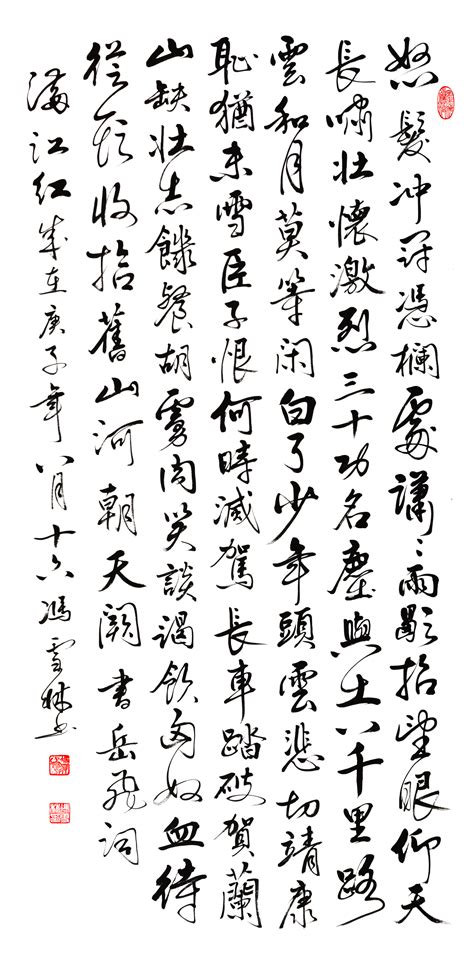 怒髮冲冠憑欄處瀟々雨歇抬望眼仰天
長嘯壯懷激烈三十功名塵與土八千里路
雲和月莫等闲白了少年頭空悲切靖康
恥猶未雪臣子恨何時滅駕長車踏破賀蘭
山缺壯志饑餐胡虜肉笑談渴飲匈奴血待
從頭收拾舊山河朝天闕書岳飛詞
滿江紅歲在庚子年八月十六馮雪林书